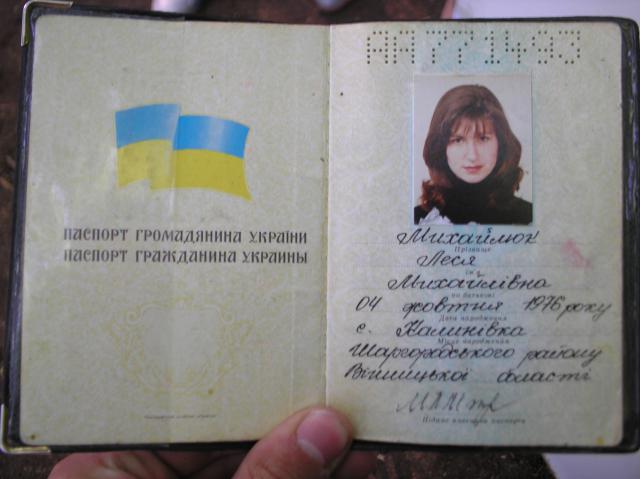 ПАСПОРТ ГРОМАДЯНИНА УКРАЇНИ
ПАСПОРТ ГРАЖДАНИНА УКРАИНЫ
АА771493
Михайлюк
Прізвище
Леся
ім'я
Михайлівна
по батькові
04 жовтня 1976 року
Дата народження
с. Калинівка
Місце народження
Шаргородського району
Вінницької області
Підпис власника паспорта